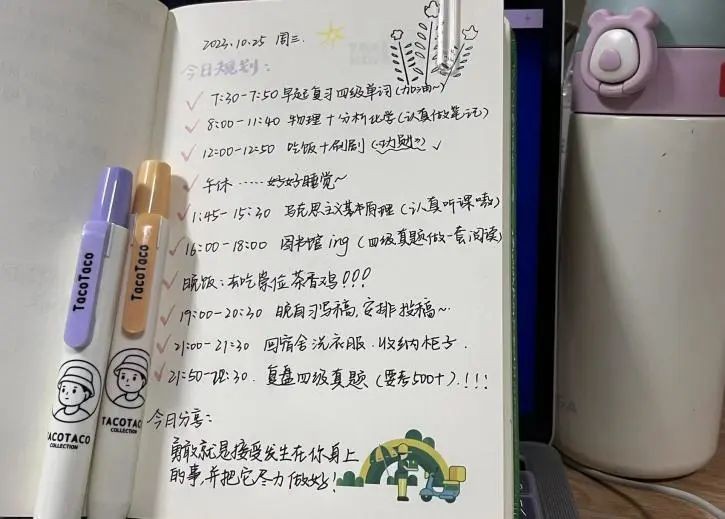 2023.10.25 周三.
今日规划：
✓ 7:30-7:50 早起复习四级单词(加油~)
✓ 8:00-11:40 物理+分析化学(认真做笔记)
✓ 12:00-12:50 吃饭+刷剧 ✓
✓ 午休……好好睡觉~
✓ 1:45-15:30 马克思主义基本原理(认真听课嗷)
✓ 16:00-18:00 图书馆 ing (四级真题做一套阅读)
✓ 晚饭：去吃 茶香鸡!!!
✓ 19:00-20:30 晚自习写稿,安排投稿~
✓ 21:00-21:30 回宿舍洗衣服.收纳柜子.
✓ 21:50-22:30. 复盘四级真题 (要考500+).!!!
今日分享：
勇敢就是接受发生在你身上
的事,并把它尽力做好!
TacoTaco
TACOTACO
COLLECTION
TacoTaco
TACOTACO
COLLECTION